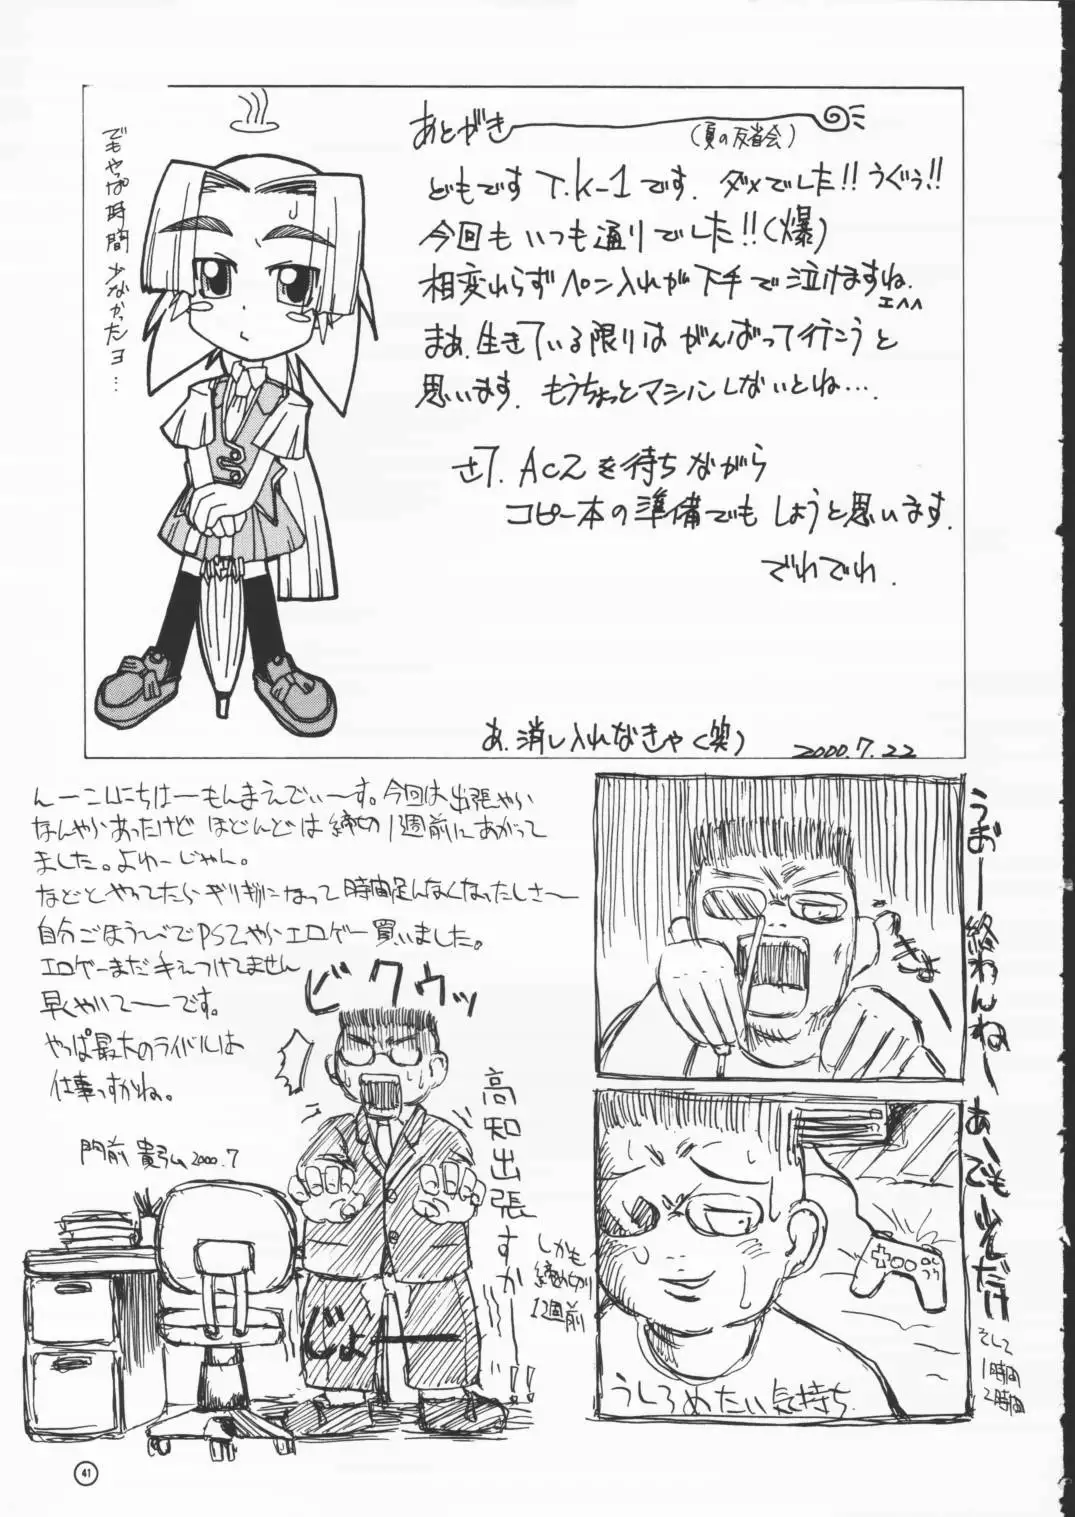 あとがき
(夏の反省会)
どもです T.K-1です. ダメでした!! うぐぅ!!
今回も いつも通りでした!!(爆)
相変わらず ペン入れが下手で泣けますね.
エヘヘ
まぁ. 生きている限りは がんばって行こうと
思います. もうちょっとマシにしないとね…
さて. AC2を待ちながら
コピー本の準備でも しようと思います.
でわでわ.
でもやっぱ時間少なかったヨ…
あ. 消し入れなきゃ(笑)
2000.7.22
んーこんにちはーもんまえでぃーす。今回は出張やら
なんやらあったけど ほどんどは 締切1週前にあがって
ました。よゆーじゃん。
などとやってたら ギリギリになって 時間足んなくなったしさ〜
自分ごほうびでPS2やらエロゲー買いました。
エロゲーまだ手えつけてません
早くやいてーです。
やっぱ最大のライバルは
仕事っすかね。
門前 貴弘 2000.7
ビクウッ
高知出張すか……!!
しかも
締め切り
1週前
じょーー
うおー終わんねー
あーでも少しだけ
そして
1時間
2時間
うしろめたい気持ち
41